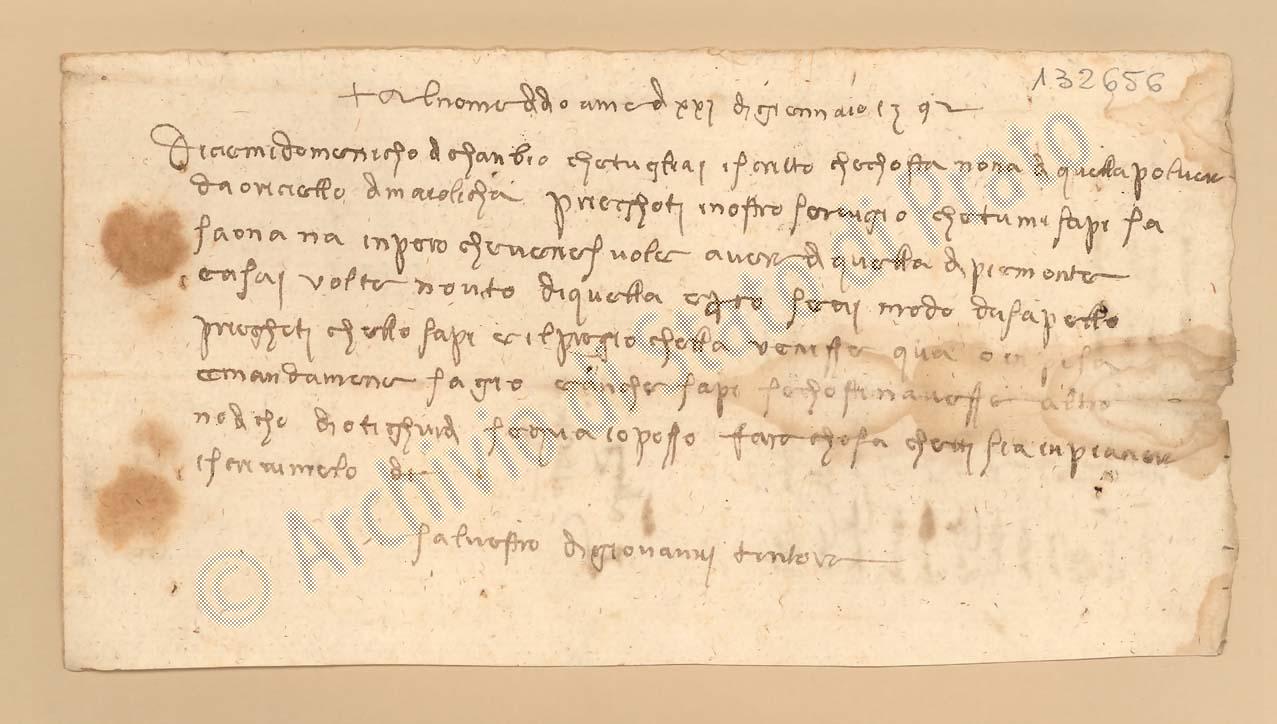 132656
+ Al nome d dio ame d xxj di giennaio 1392
Diciemi domenicho d chanbio che tugliai iscritto che chosta nona d quella polvere
da oricello d maiolicha prieghoti inostro servigio che tu mi sapi sa
saona na inpero che vene suole avere d quella di piemonte
e asai volte non to di quella e modo da sapello
prieghoti chello sapi e il pregio chella venisse qua o in pisa
e mandamene sagio e anche sapi se chostinavesse altro
non dicho dio ti ghuidi se qua io posso fare chosa che ti sia in piacere
iscrivimelo
salvestro di giovanni tintore
© Archivio di Stato di Prato